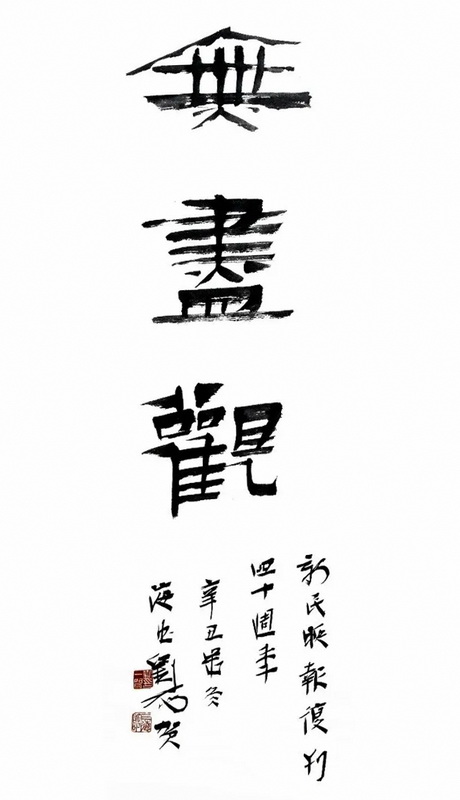 無盡觀
新民晚報復刊
四十週年
辛丑冬
海劉賀